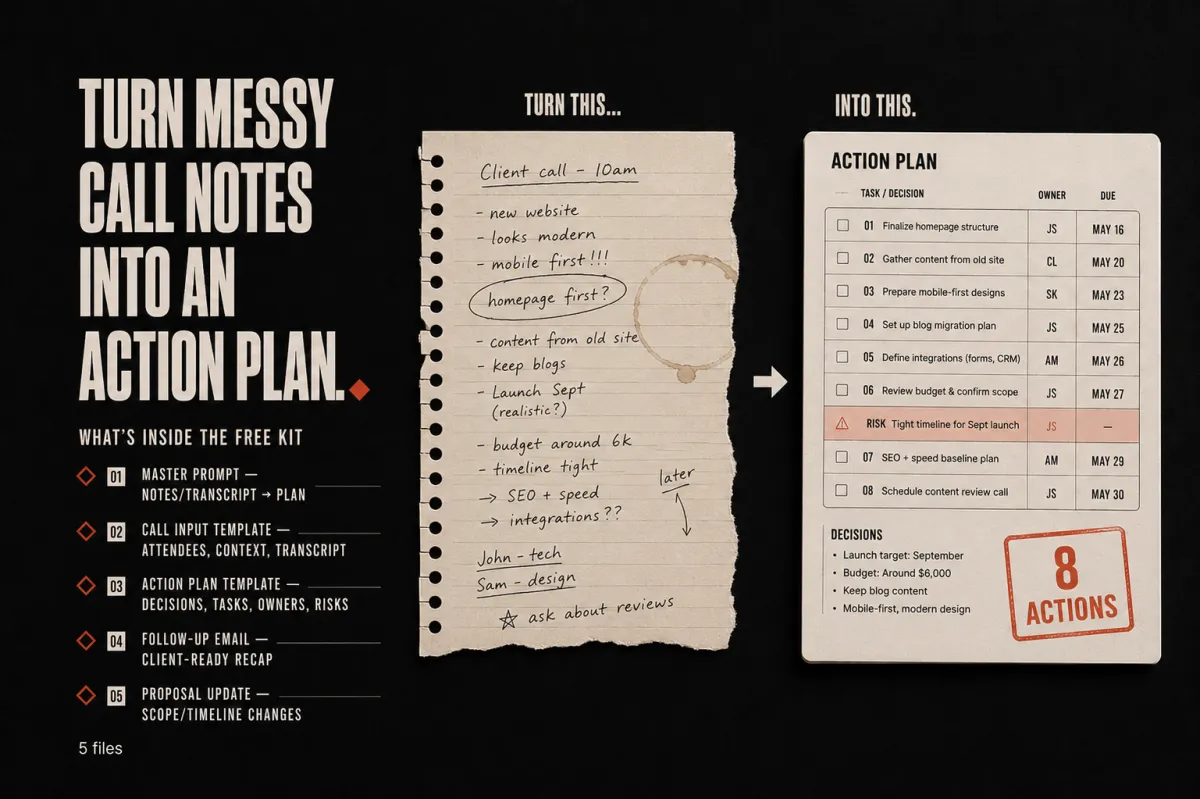 TURN MESSY
CALL NOTES
INTO AN
ACTION PLAN.
WHAT'S INSIDE THE FREE KIT
01 MASTER PROMPT —
NOTES/TRANSCRIPT → PLAN
02 CALL INPUT TEMPLATE —
ATTENDEES, CONTEXT, TRANSCRIPT
03 ACTION PLAN TEMPLATE —
DECISIONS, TASKS, OWNERS, RISKS
04 FOLLOW-UP EMAIL —
CLIENT-READY RECAP
05 PROPOSAL UPDATE —
SCOPE/TIMELINE CHANGES
5 files
TURN THIS...
Client call - 10am
- new website
- looks modern
- mobile first!!!
homepage first?
- content from old site
- keep blogs
- Launch Sept
(realistic?)
- budget around 6k
- timeline tight
→ SEO + speed
→ integrations??
later
John - tech
Sam - design
☆ ask about reviews
INTO THIS.
ACTION PLAN
TASK / DECISION OWNER DUE
01 Finalize homepage structure JS MAY 16
02 Gather content from old site CL MAY 20
03 Prepare mobile-first designs SK MAY 23
04 Set up blog migration plan JS MAY 25
05 Define integrations (forms, CRM) AM MAY 26
06 Review budget & confirm scope JS MAY 27
RISK Tight timeline for Sept launch JS —
07 SEO + speed baseline plan AM MAY 29
08 Schedule content review call JS MAY 30
DECISIONS
• Launch target: September
• Budget: Around $6,000
• Keep blog content
• Mobile-first, modern design
8
ACTIONS